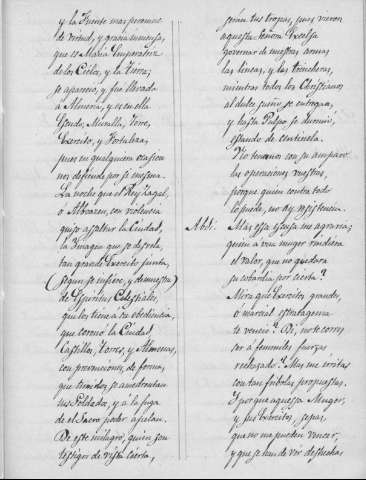 y la Fuente mas perenne
de virtud, y gracia inmensa,
que es Maria Emperatriz
de los Cielos, y la Tierra;
se aparecio, y fue llevada
a Almeria, y es en ella
Escudo, Muralla, Torre,
Exercito, y Fortaleza,
pues en qualquiera ocasion
nos defiende por si mesma.
La noche que el Rey Zagal,
ò Almazen, con violencia
quiso asaltar la Ciudad,
la Imagen que se desvela,
tan grande Exercito junta,
(segun se infiere, y demuestra)
de Espiritus Celestiales,
que los tiene à su obediencia,
que coronó la Ciudad,
Castillos, Torres, y Almenas,
con prevenciones, de forma,
que timidos se amedrentan
tus Soldados, y à la fuga
de el Sacro poder apelan.
De este milagro, quien son
testigos de vista cierta,
serán tus tropas, pues vieron
aquesta Señora Excelsa
governar de nuestras armas
las lineas, y las trincheras,
mientras todos los Christianos
al dulce sueño se entregan,
y hasta Pulpo se durmió,
estando de centinela.
Nio temamos con su amparo
las operaciones vuestras,
porque quien contra todo
lo puede, no ay resistencia.
Abdi: Mas essa escusa me agravia;
quien a una muger rindiera
el valor, que no quedara
su cobardia por cierta?
Mira què Exercitos grandes,
ò marcial estratagema
te venciò? Dì, no te corres
ser à femeniles fuerzas
rechazado? Mas me irritas
con tan fabulas propuestas.
Y porque aquessa Muger,
y sus Exercitos, sepas,
que no me pueden vencer,
y que se han de ver deshechas